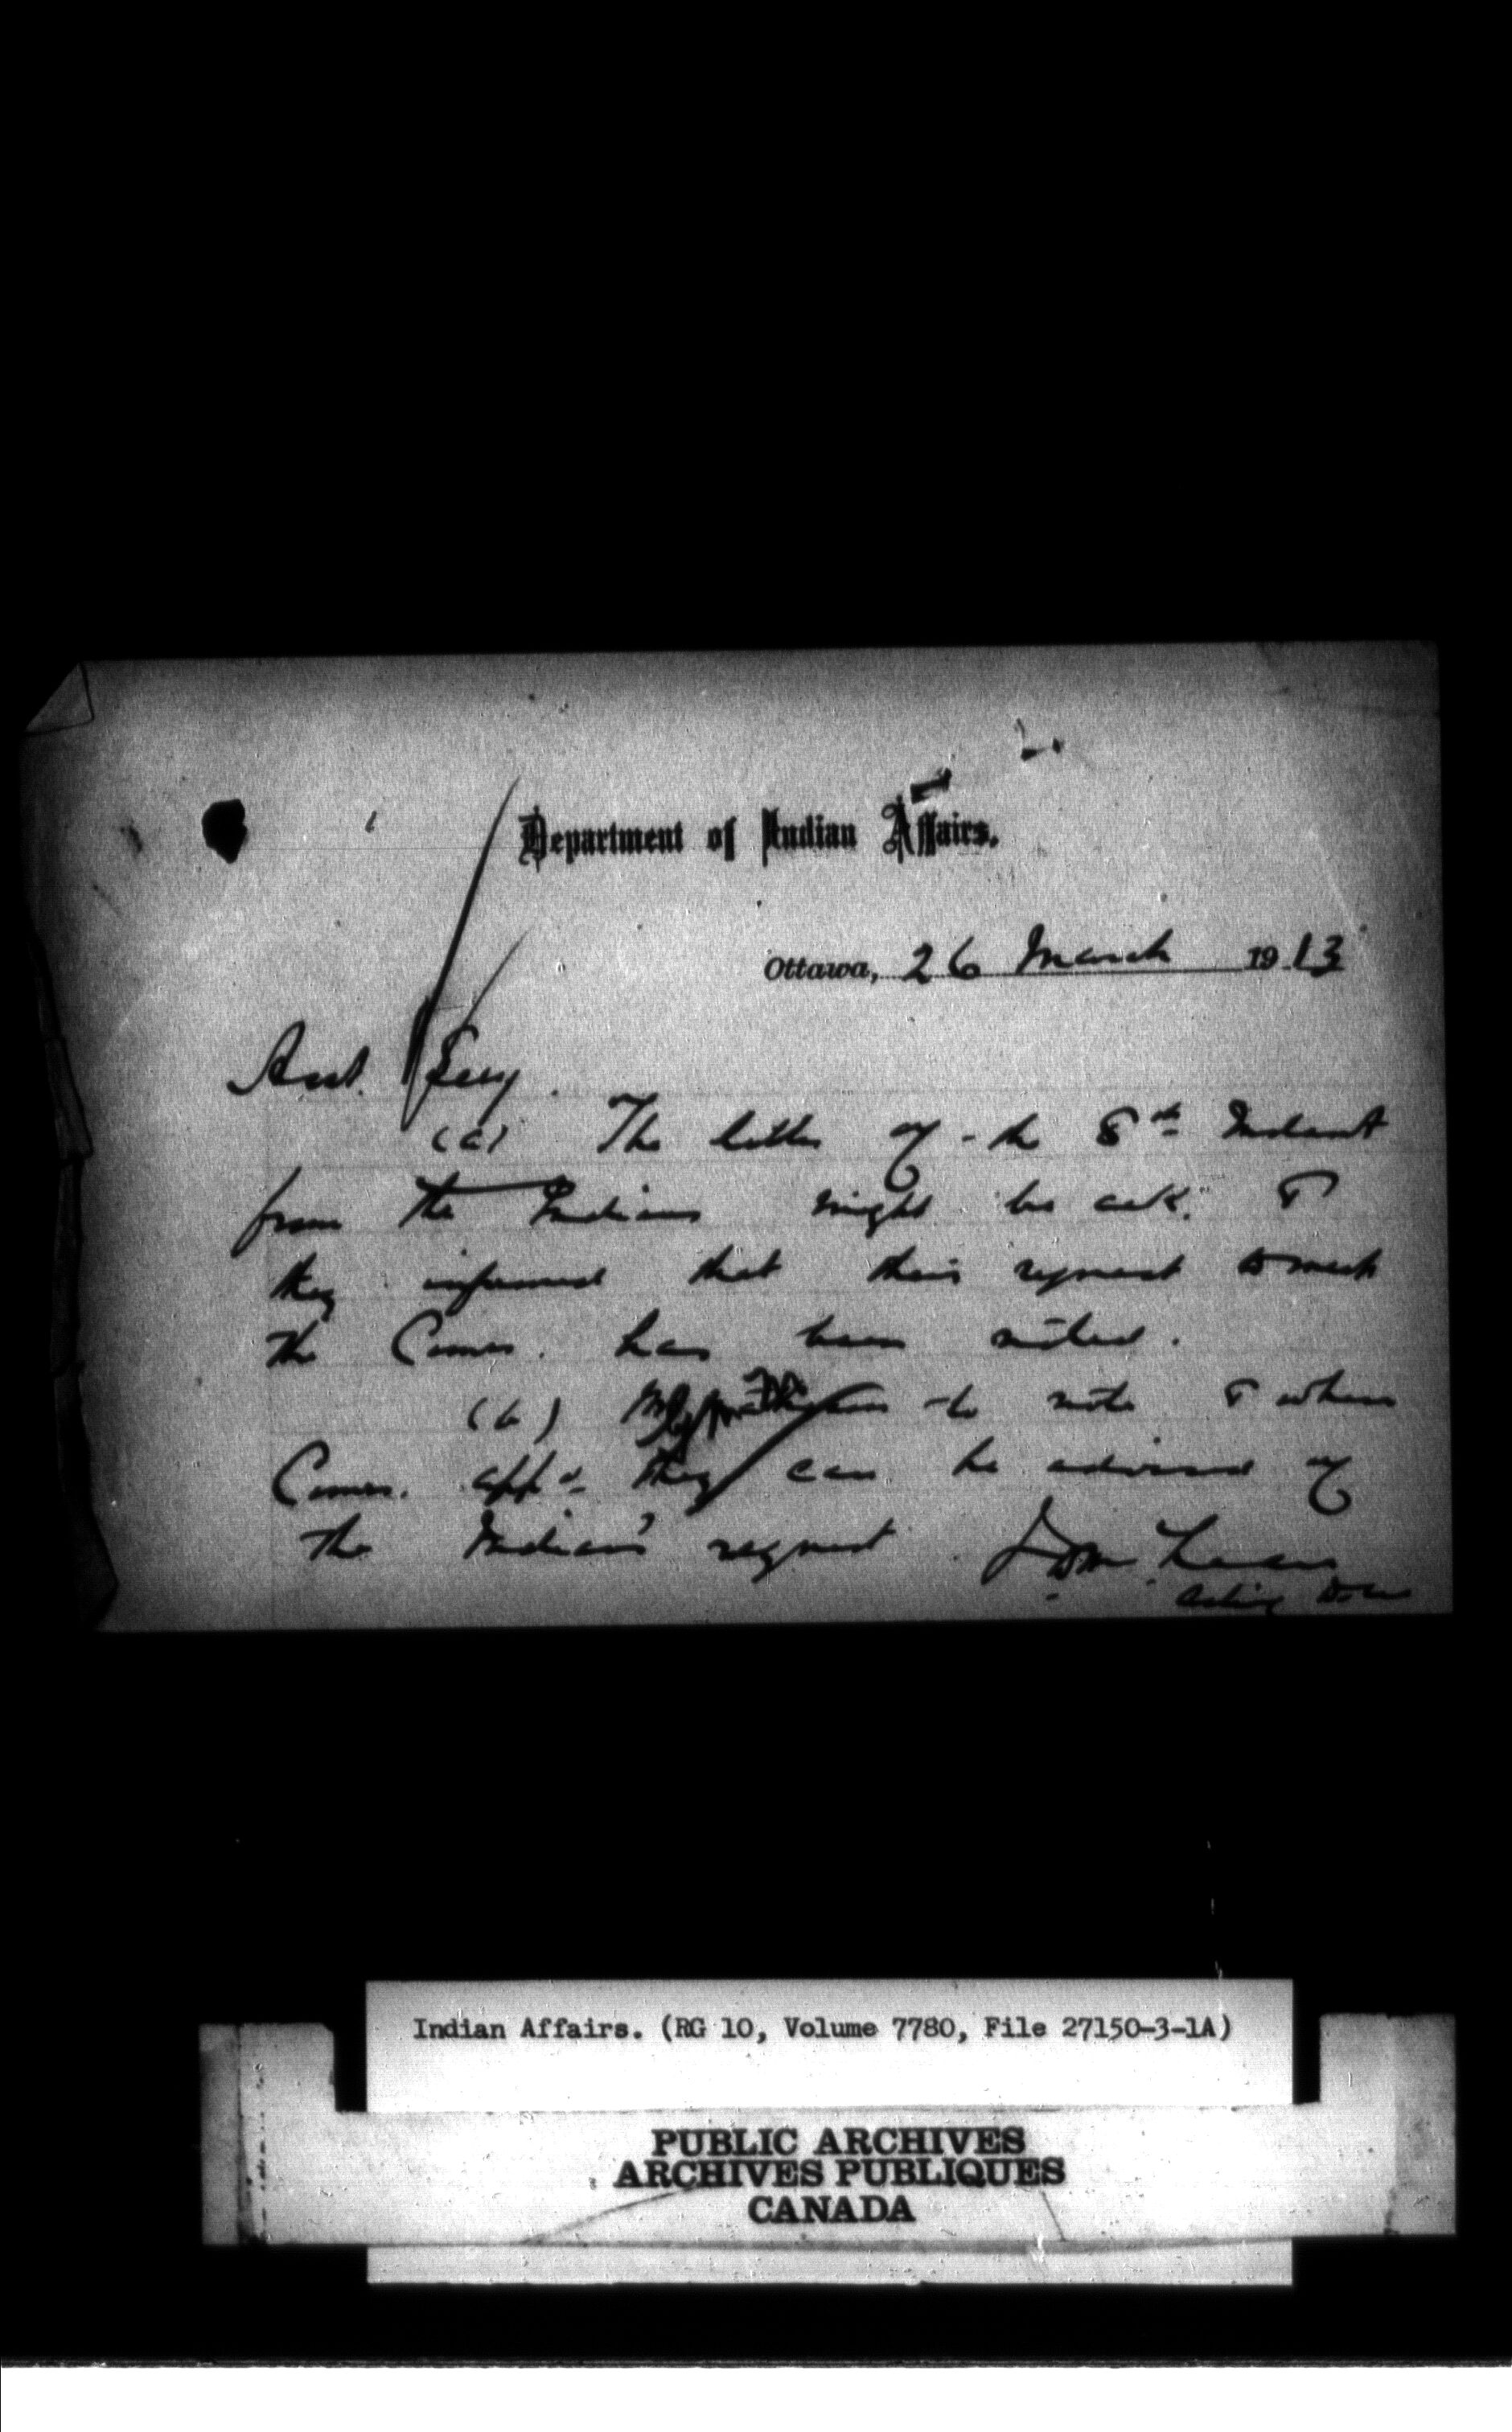 Department of Indian Affairs.
Ottawa, 26 March 1913
Asst. Secy.
(a) The letter of the 8th Instant
from the Indians might be ack. &
they informed that their request to meet
the Comrs. has been noted.
(b) to note & when
Comrs. appd. they can be advised of
the Indians' request.
Acting
Indian Affairs. (RG 10, Volume 7780, File 27150-3-1A)
PUBLIC ARCHIVES
ARCHIVES PUBLIQUES
CANADA